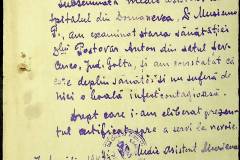 Subsemnata medic asistent
spitalul din Domanevca, D. Museanu
P., am examinat starea sănătății
lui Postovan Anton din satul
Jud. Golta, și am constatat că
este deplin sănătos și nu suferă de
nici o boală infectocontagioasă.
Drept care i-am eliberat prezen-
tul certificat spre a servi la nevoie.
Medic asistent